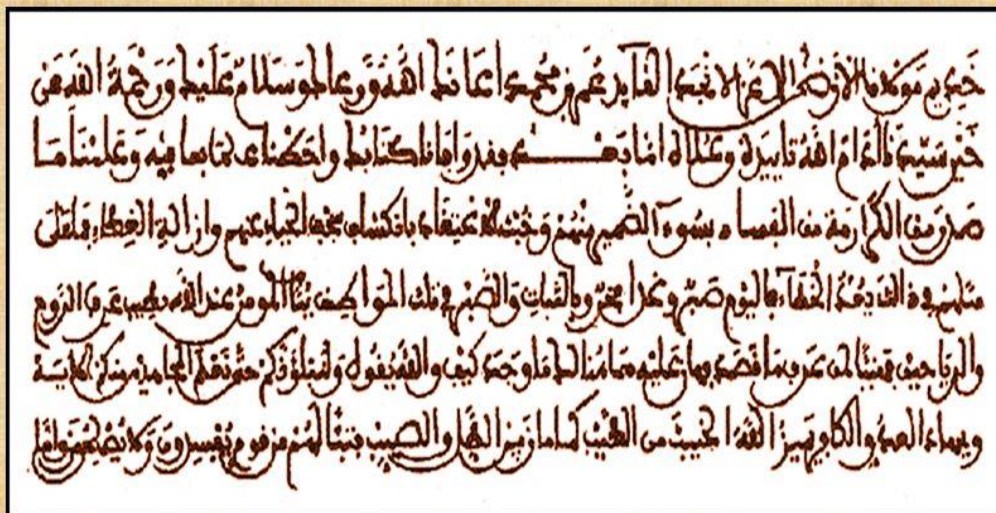 خديم مولانا الارضى الاعز الانجد القايد عمر بن محمد اعانك الله ورعاك وسلام عليك ورحمة الله عن
خير سيدنا ادام الله تاييده وعلاه اما بعد فقد وافانا كتابك واحطنا علما بما فيه وعلمنا ما
صدر من الكرارمة من الفساد بسوء الضمير منهم وخبث الاعتقاد بانكشاف الحياء عنهم وازالة الغطاء
في ذلك بعد الخفاء فاليوم صبر وغدا مخبر وبالثبات والصبر في تلك المواطن المومن عند الله بطيب عرف الروح
والرياحين فهنيئا لمن عرف ما قصد فهان عليه ما هنالك ما وجد كيف والله يقول ولنبلونكم حتى نعلم المجاهدين منكم الاية
وبجهاد العدو الكافر يميز الله الخبيث من الطيب كما ماز بين الطل والصيب فتبا لهم من قوم يفسدون ولا يصلحون